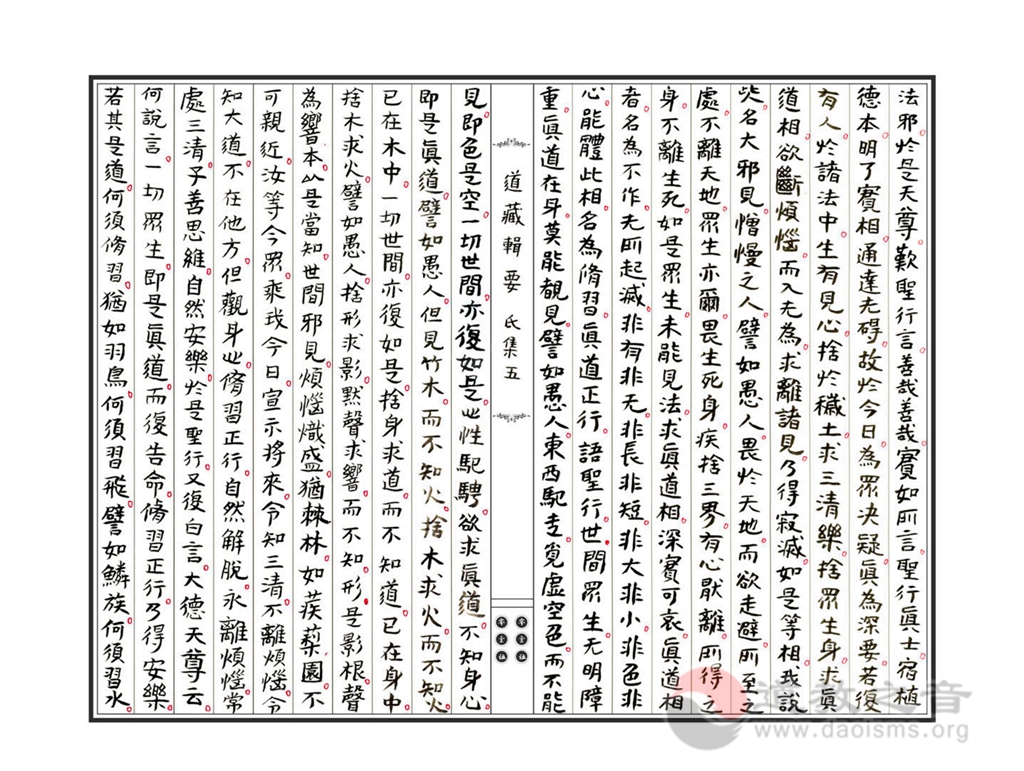 法邪於是天尊歎聖行言善哉善哉實如所言聖行真士宿植
德本明了實相通達无碍故於今日為眾決疑真為深要若復
有人於諸法中生有見心捨於穢土求三清樂捨眾生身求真
道相欲斷煩惱而入无為求離諸見乃得寂滅如是等相我說
此名大邪見憎慢之人譬如愚人畏於天地而欲走避所至之
處不離天地眾生亦爾畏生死身疾捨三界有心厭離所得之
身不離生死如是眾生未能見法求真道相深實可哀真道相
者名為不作无所起滅非有非无非長非短非大非小非色非
心能體此相名為脩習真道正行語聖行世間眾生无明障
重真道在身莫能覩見譬如愚人東西馳走覓虛空色而不能
道藏輯要 氐集五
見即色是空一切世間亦復如是心性馳騁欲求真道不知身心
即是真道譬如愚人但見竹木而不知火捨木求火而不知火
已在木中一切世間亦復如是捨身求道而不知道已在身中
捨木求火譬如愚人捨形求影默聲求響而不知形是影根聲
為響本以是當知世間邪見煩惱熾盛猶棘林如蒺䔧園不
可親近汝等今眾乘我今日宣示將來令知三清不離煩惱令
知大道不在他方但觀身心脩習正行自然解脫永離煩惱常
處三清子善思維自然安樂於是聖行又復白言大德天尊云
何說言一切眾生即是真道而復告命脩習正行乃得安樂
若其是道何須脩習猶如羽鳥何須習飛譬如鱗族何須習水
道教之音
www.daoisms.org